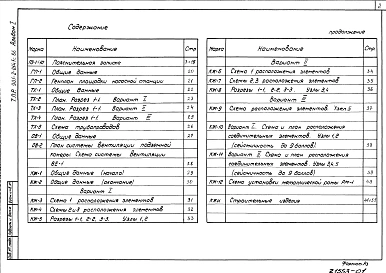 2
Содержание
продолжение
Марка Наименование Стр
ПЗ-1÷16 Пояснительная записка 3-18
ГП-1 Общие данные 20
ГП-2 Генплан площадки насосной станции 21
ТХ-1 Общие данные 22
ТХ-2 План. Разрез 1-1 Вариант I 23
ТХ-3 План. Разрез 1-1 Вариант II 24
ТХ-4 План. Разрез 1-1 Вариант III 25
ТХ-5 Схема трубопроводов 26
ОВ-1 Общие данные 27
ОВ-2 План системы вентиляции подземной
камеры Схема системы вентиляции
ВЕ-1 28
КЖ-1 Общие данные (начало) 29
КЖ-2 Общие данные (окончание) 30
Вариант I
КЖ-3 Схема 1 расположения элементов 31
КЖ-4 Схемы 2 и 3 расположения элементов 32
КЖ-5 Разрезы 1-1, 2-2, 3-3. Узлы 1, 2 33
Марка Наименование Стр
Вариант II
КЖ-6 Схема 1 расположения элементов 34
КЖ-7 Схемы 2, 3 расположения элементов 35
КЖ-8 Разрезы 1-1, 2-2, 3-3. Узлы 3,4 36
Вариант III
КЖ-9 Схема расположения элементов Узел 5 37
КЖ-10 Вариант I. Схема и план расположения
соединительных элементов. Узлы 1,2
(сейсмичность до 9 баллов) 38
КЖ-11 Вариант II. Схема и план расположения
соединительных элементов. Узлы 3,4,5
(сейсмичность до 9 баллов) 39
КЖ-12 Схема установки монолитной рамы РМ-1 40
КЖИ Строительные изделия
Формат А3
21553-01